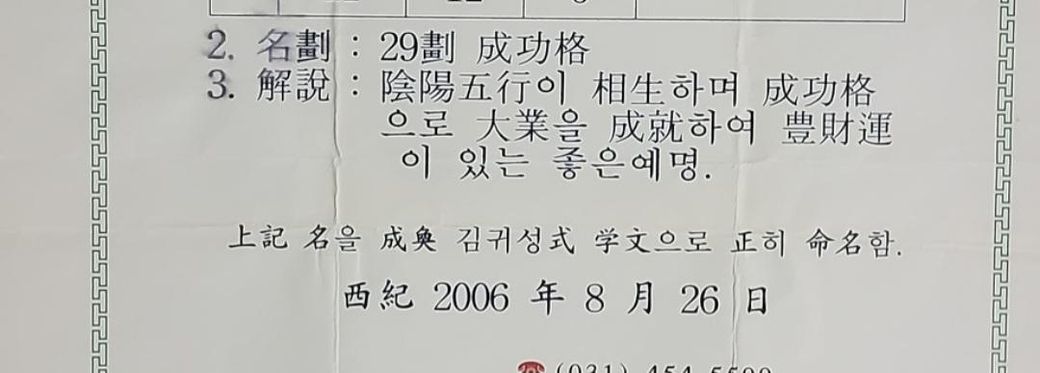 2. 名劃 : 29劃 成功格
3. 解説 : 陰陽五行이 相生하며 成功格
으로 大業을 成就하여 豊財運
이 있는 좋은예명.
上記 名을 成奐 김귀성式 学文으로 正히 命名함.
西紀 2006 年 8 月 26 日
☎ (031)